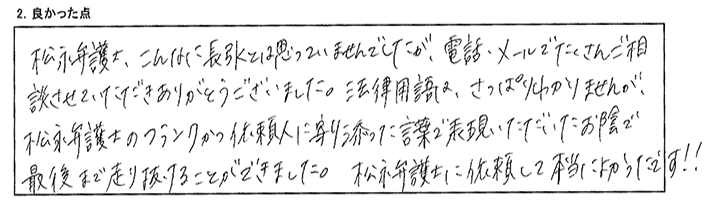 2. 良かった点
松永弁護士、こんなに長引くとは思っていませんでしたが、電話、メールでたくさんご相
談させていただきありがとうございました。法律用語は、さっぱりわかりませんが、
松永弁護士のフランクかつ依頼人に寄り添った言葉で表現いただいたお陰で
最後まで走り抜けることができました。 松永弁護士に依頼して本当によかったです!!